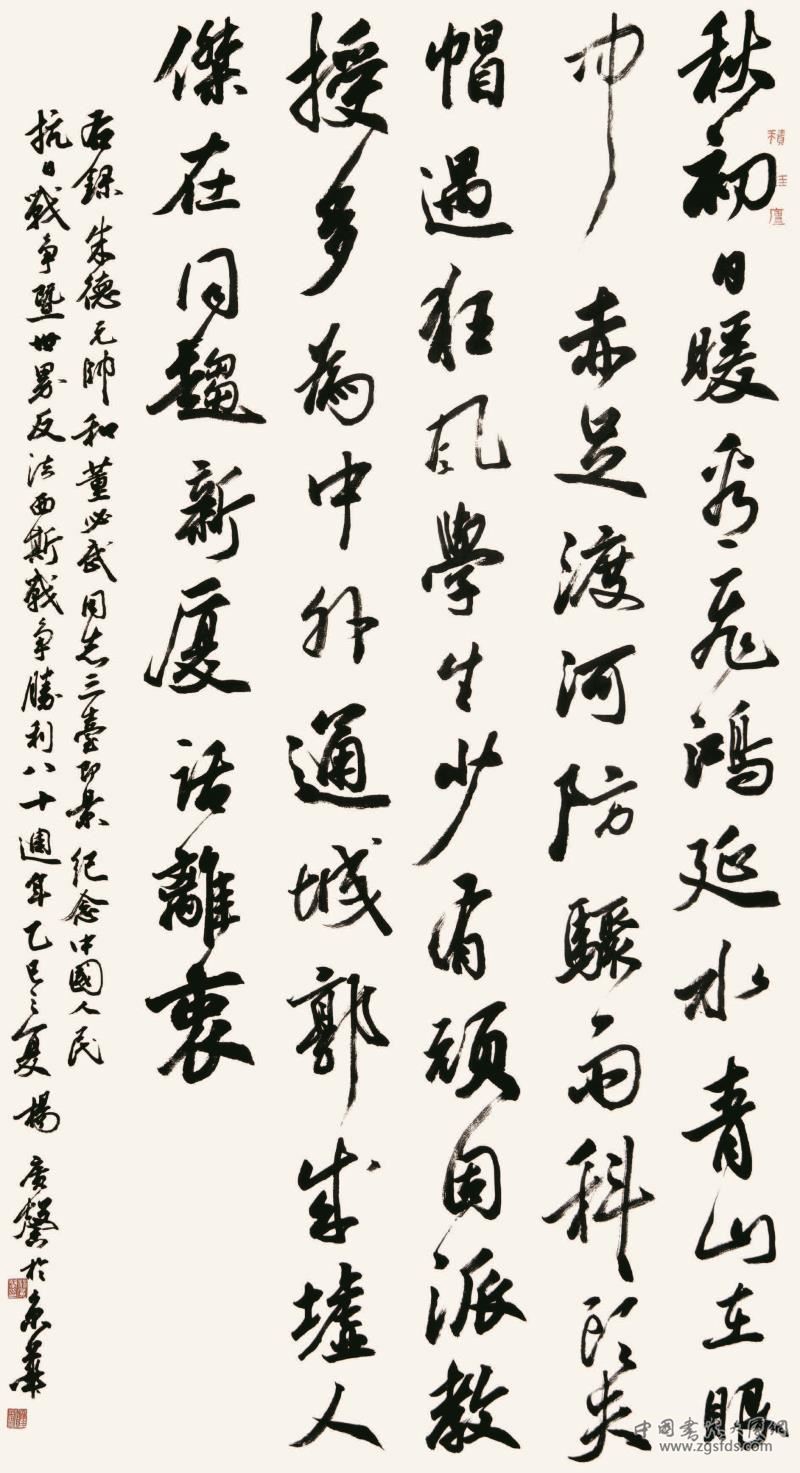 秋初日暖看飛鴻延水青山在眼
中赤足渡河防驟雨科頭失
帽遇狂風學生少有頑固派教
授多為中外通城郭成墟人
傑在同趨新廈話離衷
右錄朱德元帥和董必武同志三臺即景紀念中國人民
抗日戰爭暨世界反法西斯戰爭勝利八十週年乙巳之夏楊廣馨於京華
中国书法大风网
www.zgsfds.com